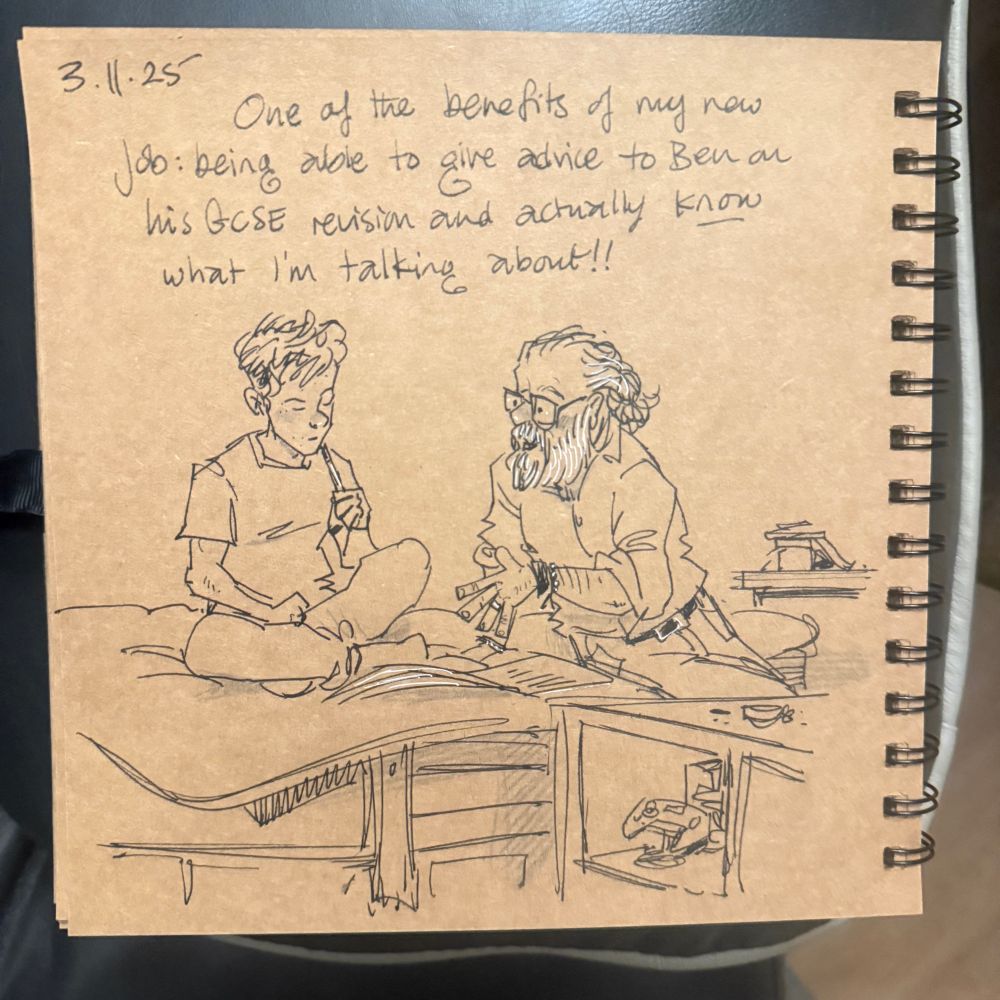 3.11.25
One of the benefits of my new
job: being able to give advice to Ben on
his GCSE revision and actually know
what I'm talking about!!